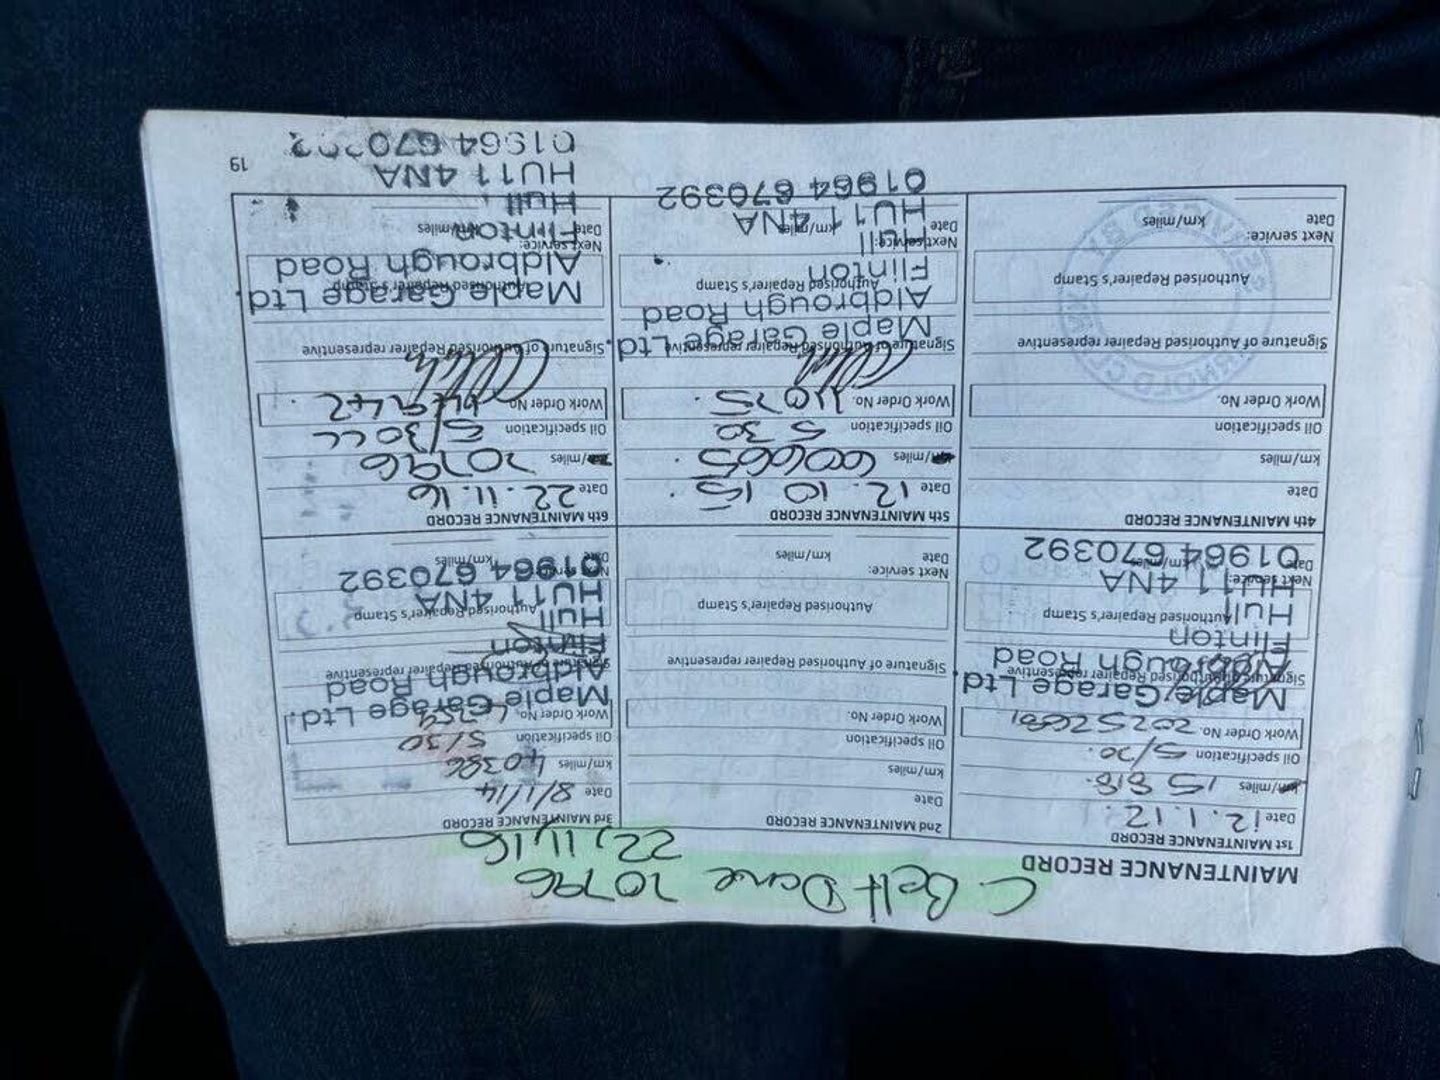 MAINTENANCE RECORD
C. Belt Done 70796
22.11.16
1st MAINTENANCE RECORD
Date 12.1.12.
km/miles 15 818.
Oil specification 5/30.
Work Order No.
Maple Garage Ltd.
Signature of Authorised Repairer representative
Aldbrough Road
Flinton
Authorised Repairer's Stamp
Hull
Next service:
HU11 4NA
Date km/miles
01964 670392
2nd MAINTENANCE RECORD
Date
km/miles
Oil specification
Work Order No.
Signature of Authorised Repairer representative
Authorised Repairer's Stamp
Next service:
Date km/miles
3rd MAINTENANCE RECORD
Date 8/1/14
km/miles 40386
Oil specification 5/30
Work Order No.
Maple Garage Ltd.
Aldbrough Road
Signature of Authorised Repairer representative
Flinton
Hull
Authorised Repairer's Stamp
HU11 4NA
Next service:
01964 670392
Date km/miles
4th MAINTENANCE RECORD
Date
km/miles
Oil specification
Work Order No.
Signature of Authorised Repairer representative
Authorised Repairer's Stamp
Next service:
Date km/miles
SERVICED BY
5th MAINTENANCE RECORD
Date 12.10 15.
km/miles 60665.
Oil specification 5 30
Work Order No. 11075.
Signature of Authorised Repairer representative
Maple Garage Ltd.
Aldbrough Road
Authorised Repairer's Stamp
Flinton
Next service:
Hull
Date km/miles
HU11 4NA
01964 670392
6th MAINTENANCE RECORD
Date 22.11.16
km/miles 70796
Oil specification 5/30 LL
Work Order No.
Signature of Authorised Repairer representative
Maple Garage Ltd.
Authorised Repairer's Stamp
Aldbrough Road
Next service:
Flinton
Date km/miles
Hull
HU11 4NA
01964 670392
19